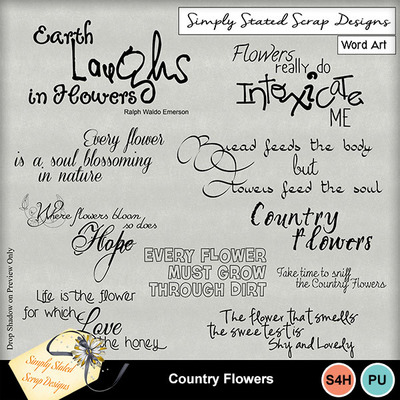 Simply Stated Scrap Designs
Word Art
Earth
Laughs
in Flowers
Ralph Waldo Emerson
Flowers
really do
Intoxicate
ME
Every flower
is a soul blossoming
in nature
Bread feeds the body
but
Flowers feed the soul
Where flowers bloom
so does
Hope
Country
Flowers
EVERY FLOWER
MUST GROW
THROUGH DIRT
Take time to sniff
the Country Flowers
Life is the flower
for which
Love
is the honey
The flower that smells
the sweetest is
Shy and Lovely
Drop Shadow on Preview Only
Simply Stated
Scrap Designs
Country Flowers
S4H
PU